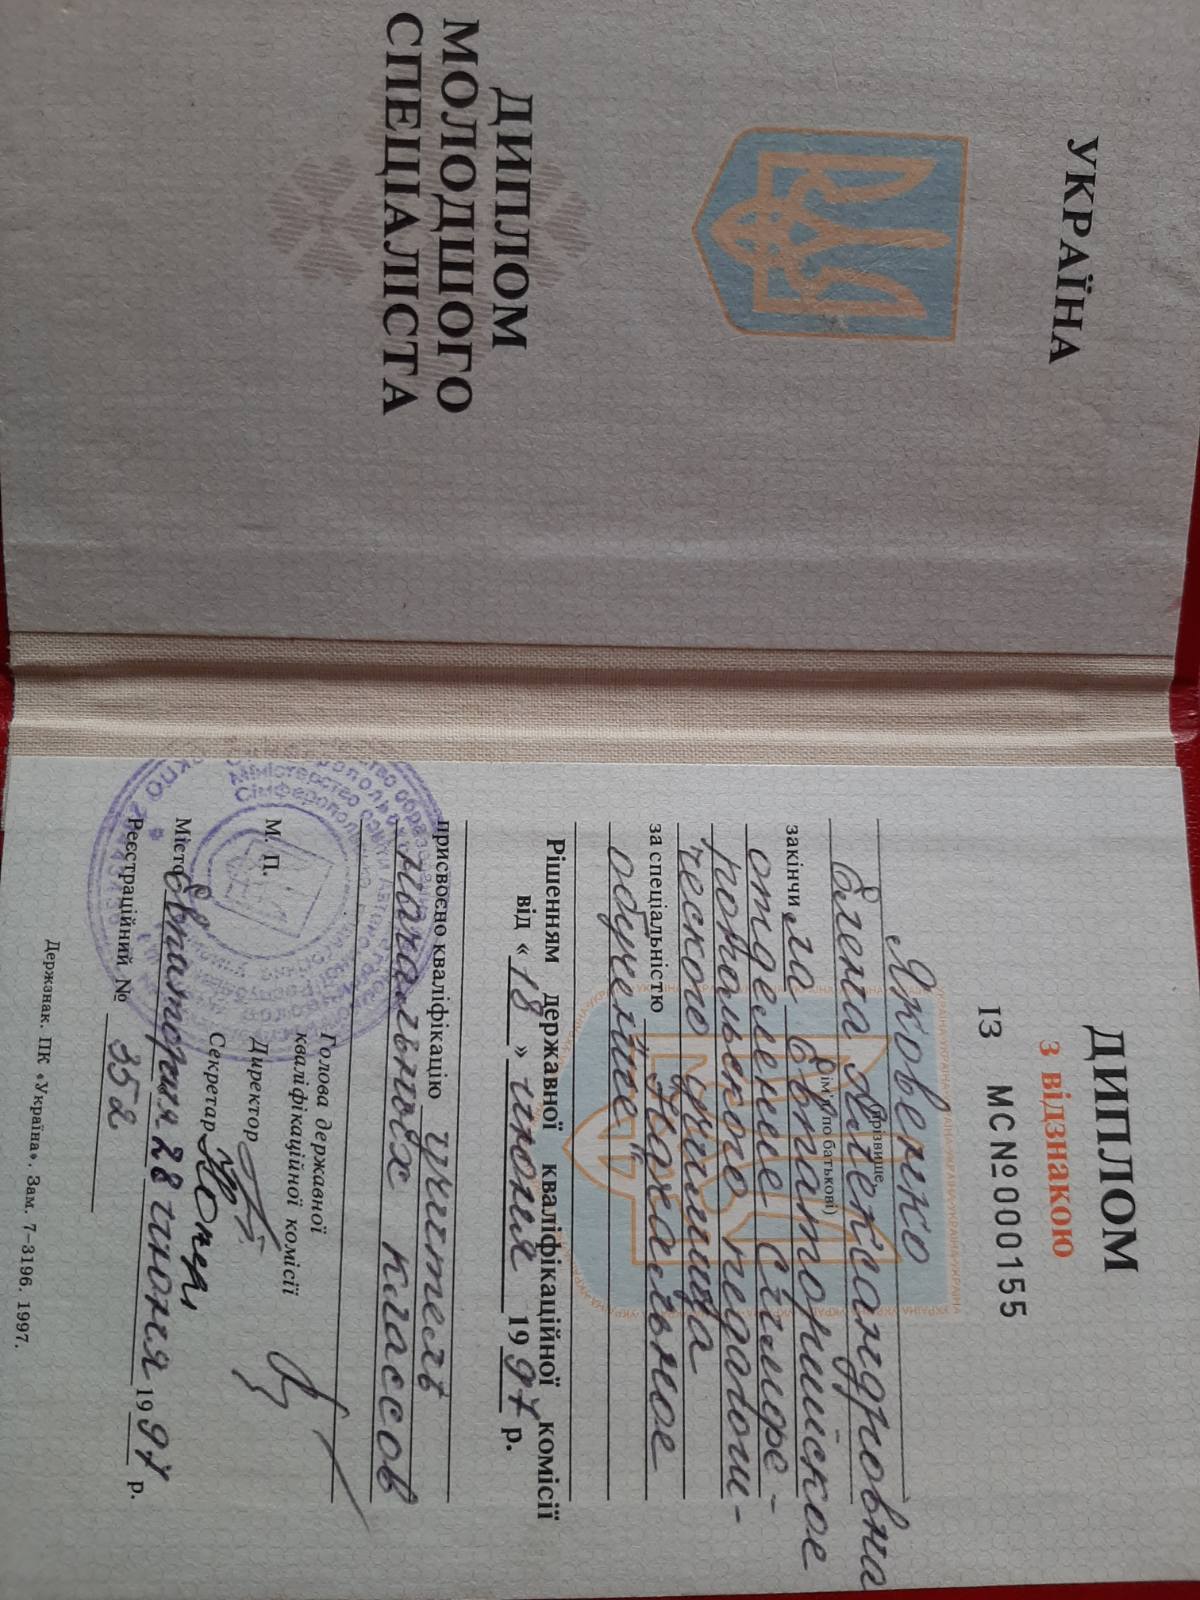 УКРАЇНА
ДИПЛОМ
МОЛОДШОГО
СПЕЦІАЛІСТА
ДИПЛОМ
з відзнакою
ІЗ МС № 000155
Яковенко
(прізвище,
Елена Александровна
ім'я, по батькові)
закінчила Евпаторийское
отделение Симфе-
ропольского педагоги-
ческого училища
за спеціальністю "Начальное
обучение"
Рішенням державної кваліфікаційної комісії
від «18» июня 1997 р.
присвоєно кваліфікацію учитель
начальных классов
Голова державної
кваліфікаційної комісії
М. П. Директор
Секретар
Місто Евпатория 28 июня 1997 р.
Реєстраційний № 352
Держзнак. ПК «Україна». Зам. 7–3196. 1997.